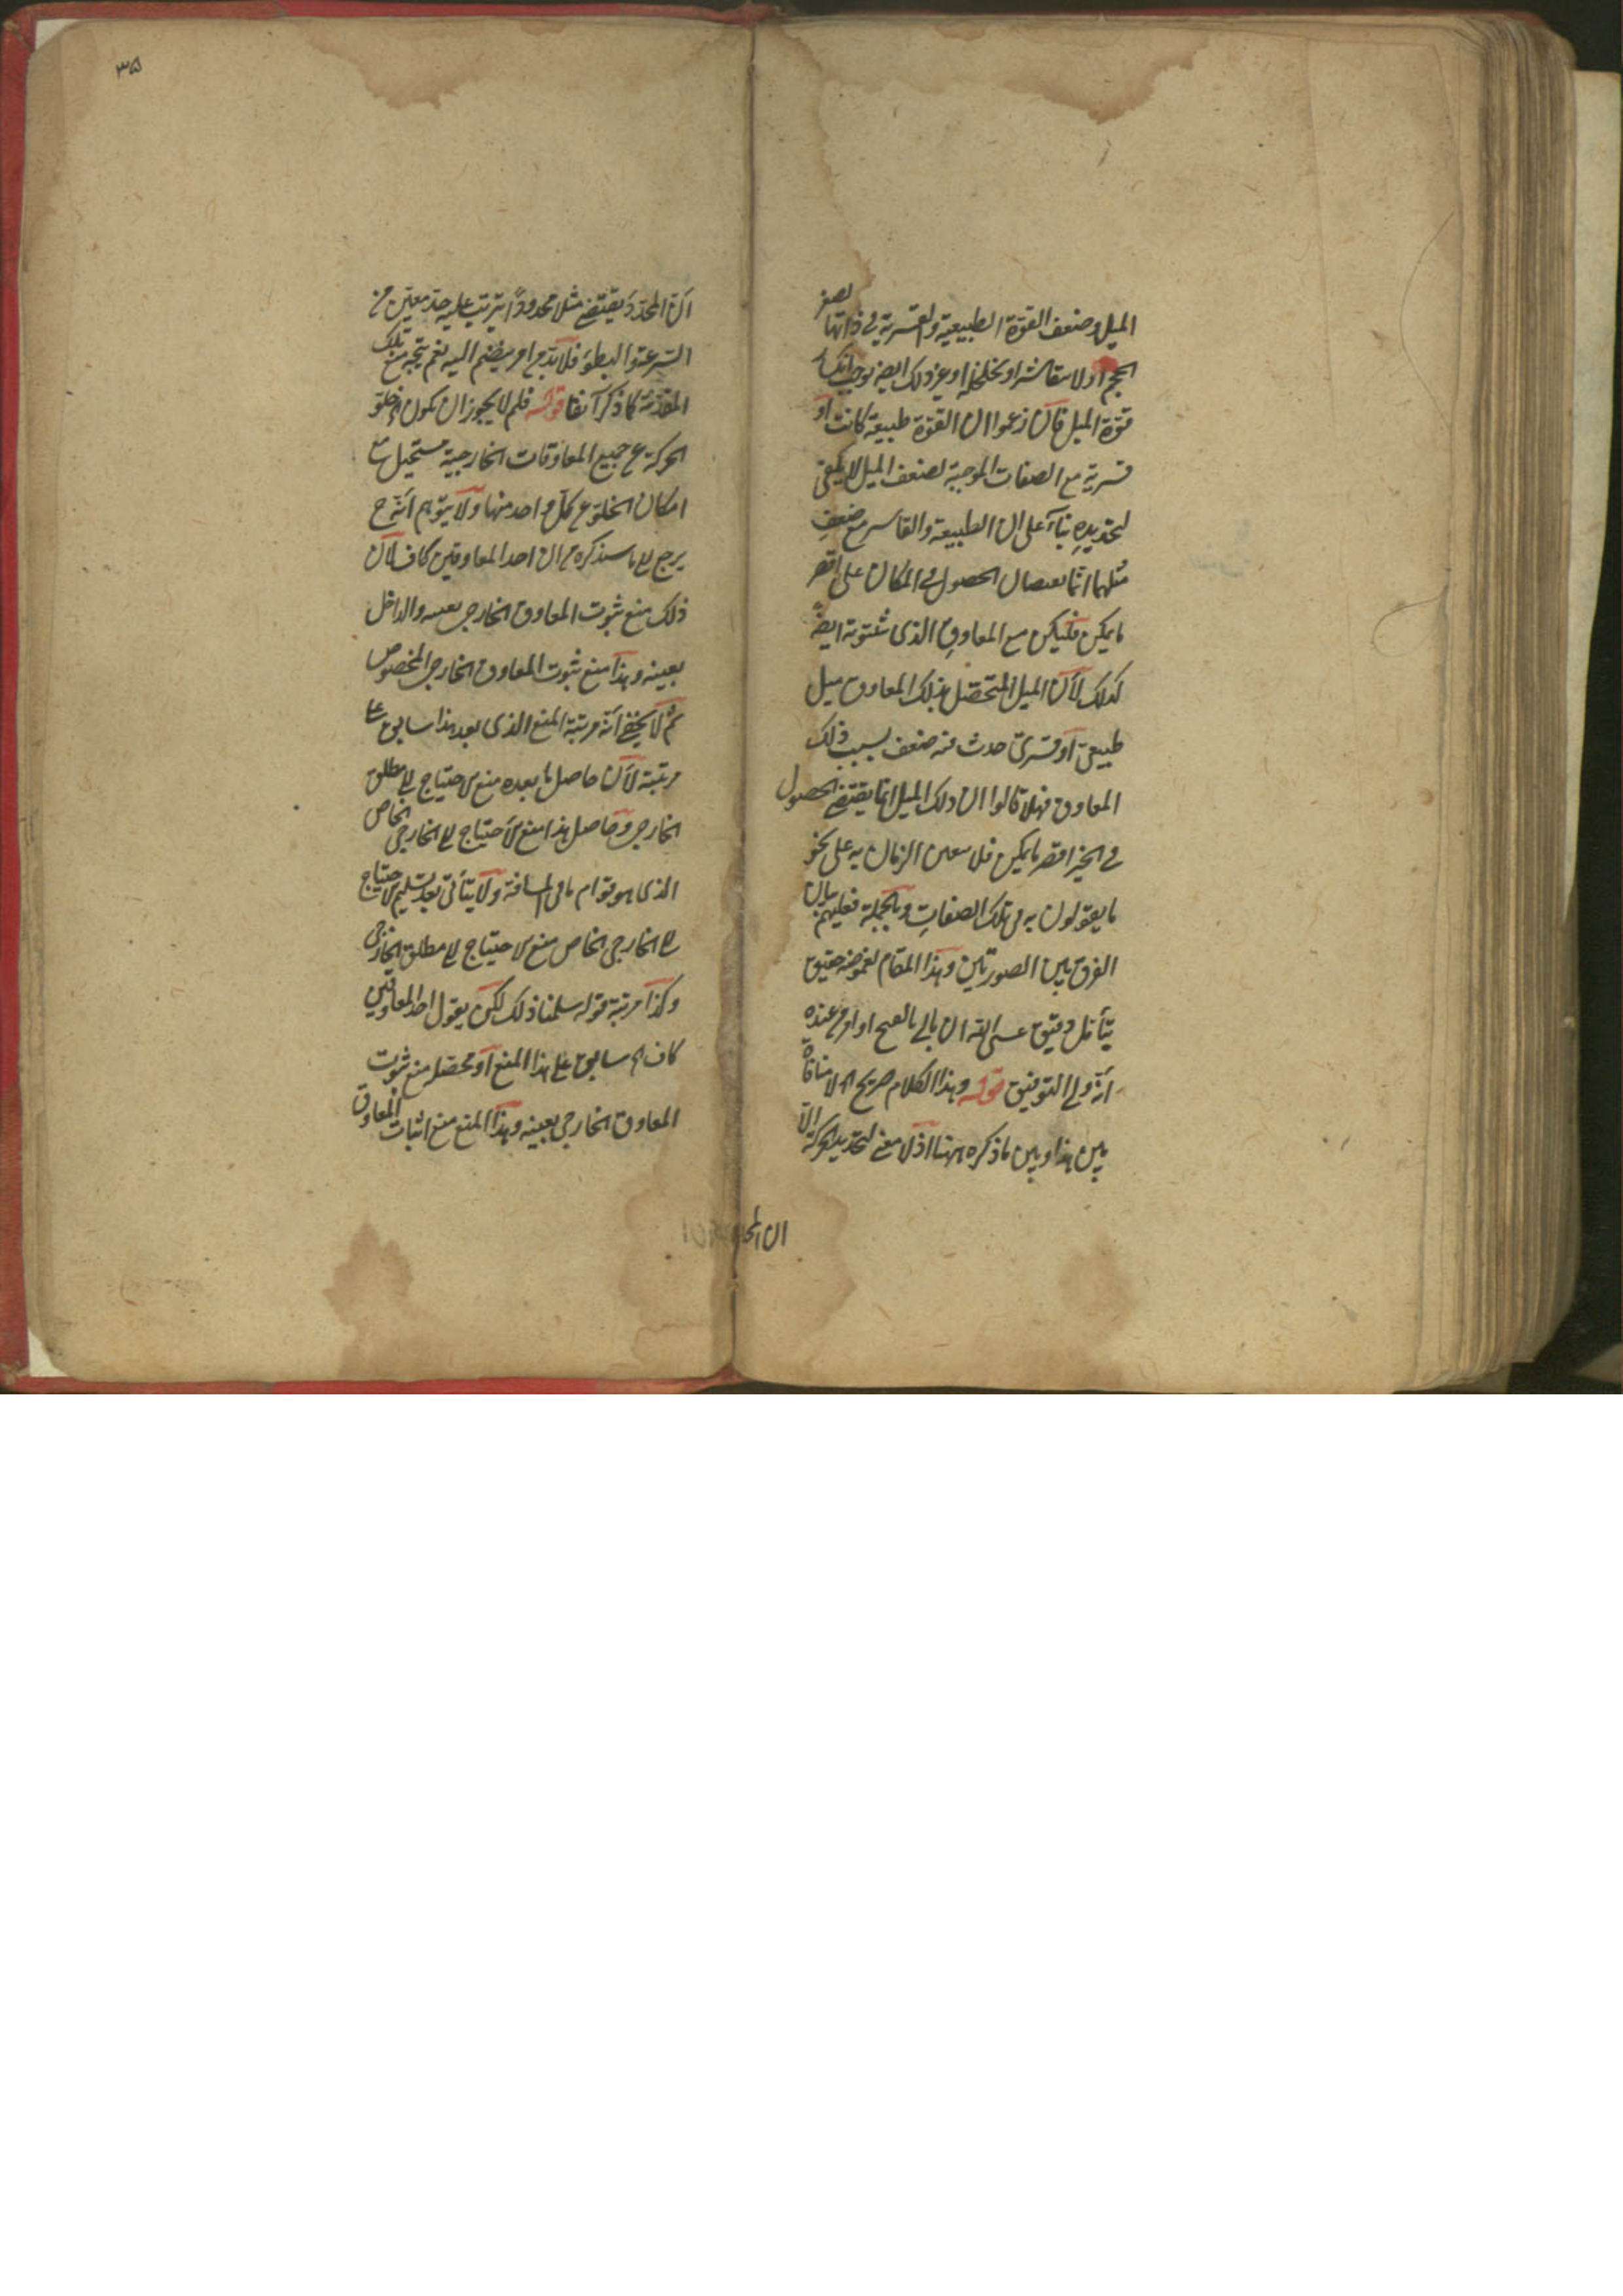 الميل وضعف القوة الطبيعية والقسرية في ذاتها لصغر
الحجم او لانتقاشه او تخلخله او غير ذلك ايضا يوجب انكسار
قوة الميل فان زعموا ان القوة طبيعية كانت او
قسرية مع الصفات الموجبة لضعف الميل لا يكفي
لتحديده بناء على ان الطبيعة والقاسر مع ضعف
ميلهما انما الحصول في المكان على اقصر
ما يمكن فليكن مع المعاوق الذى ثبتوته ايضا
كذلك لان الميل المتحصل بذلك المعاوق ميل
طبيعي او قسرى حدث فيه ضعف بسبب ذلك
المعاوق فهلا قالوا ان ذلك الميل انما يقتضي الحصول
في الحيز اقصر ما يمكن فلا الزمان به على نحو
ما يقولون به فى تلك الصفات وبالجملة فعليهم بيان
الفرق بين الصورتين وهذا المقام لغموضه حقيق
بتأمل دقيق عسى الله ان يأتي بالفتح او امر عنده
انه ولي التوفيق قوله وهذا الكلام صريح اه لا منافاة
بين هذا وبين ما ذكره ههنا اذ لا معنى لتحديد الحركة الا
ان المحدد
٣٥
ان المحدد يقتضي مثلا محدودا يترتب عليه حد معين من
السرعة والبطؤ فلا بد من امر ينضم اليه نعم يتجه منع تلك
المقدمة كما ذكر آنفا قوله فلم لا يجوز ان يكون اه خلو
الحركة عن جميع المعاوقات الخارجية مستحيل مع
امكان الخلو عن كل واحد منها ولا يتوهم انه ح
يرجع الى ما سنذكره من ان احد المعاوقين كاف لان
ذلك منع ثبوت المعاوق الخارجي بعينه والداخل
بعينه وهذا منع ثبوت المعاوق الخارجي المخصوص
ثم لا يخفى انه مرتبة المنع الذى بعد هذا سابق على
مرتبة لان حاصل ما بعده منع الاحتياج الى مطلق
الخارجي وحاصل هذا منع الاحتياج الى الخارجي الخاص
الذى هو قوام ما في المسافة ولا يتأتى بعد تسليم الاحتياج
الى الخارجي الخاص منع الاحتياج الى مطلق الخارجي
وكذا مرتبة قوله سلمنا ذلك لكن يقول احد المعاوقين
كاف اه سابق على هذا المنع او محصله منع ثبوت
المعاوق الخارجي بعينه وهذا المنع منع اثبات المعاوق